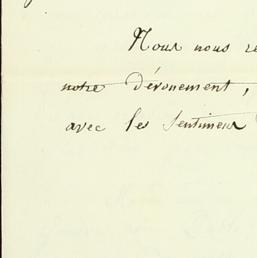 Nous nous re
notre dévouement,
avec les sentimens